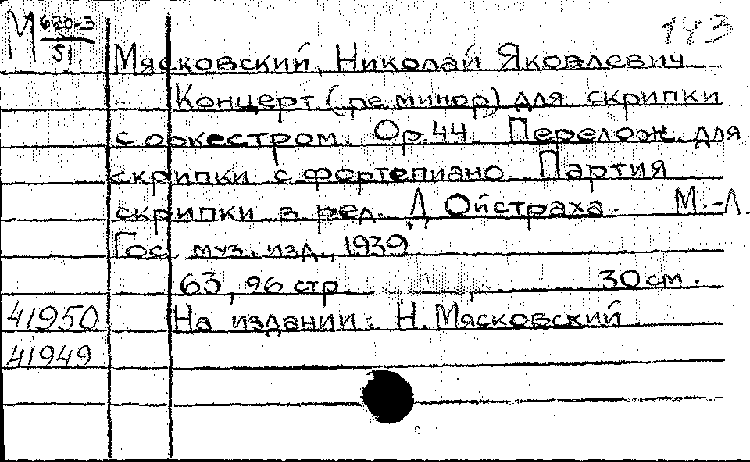 М 620-3
51
183
Мясковский, Николай Яковлевич
Концерт (ре минор) для скрипки
с оркестром. Ор. 44. Перелож. для
скрипки с фортепиано. Партия
скрипки в ред. Д. Ойстраха. М.-Л.
Гос. муз. изд., 1939.
63, 26 стр. 30 см.
41950 На издании: Н. Мясковский
41949